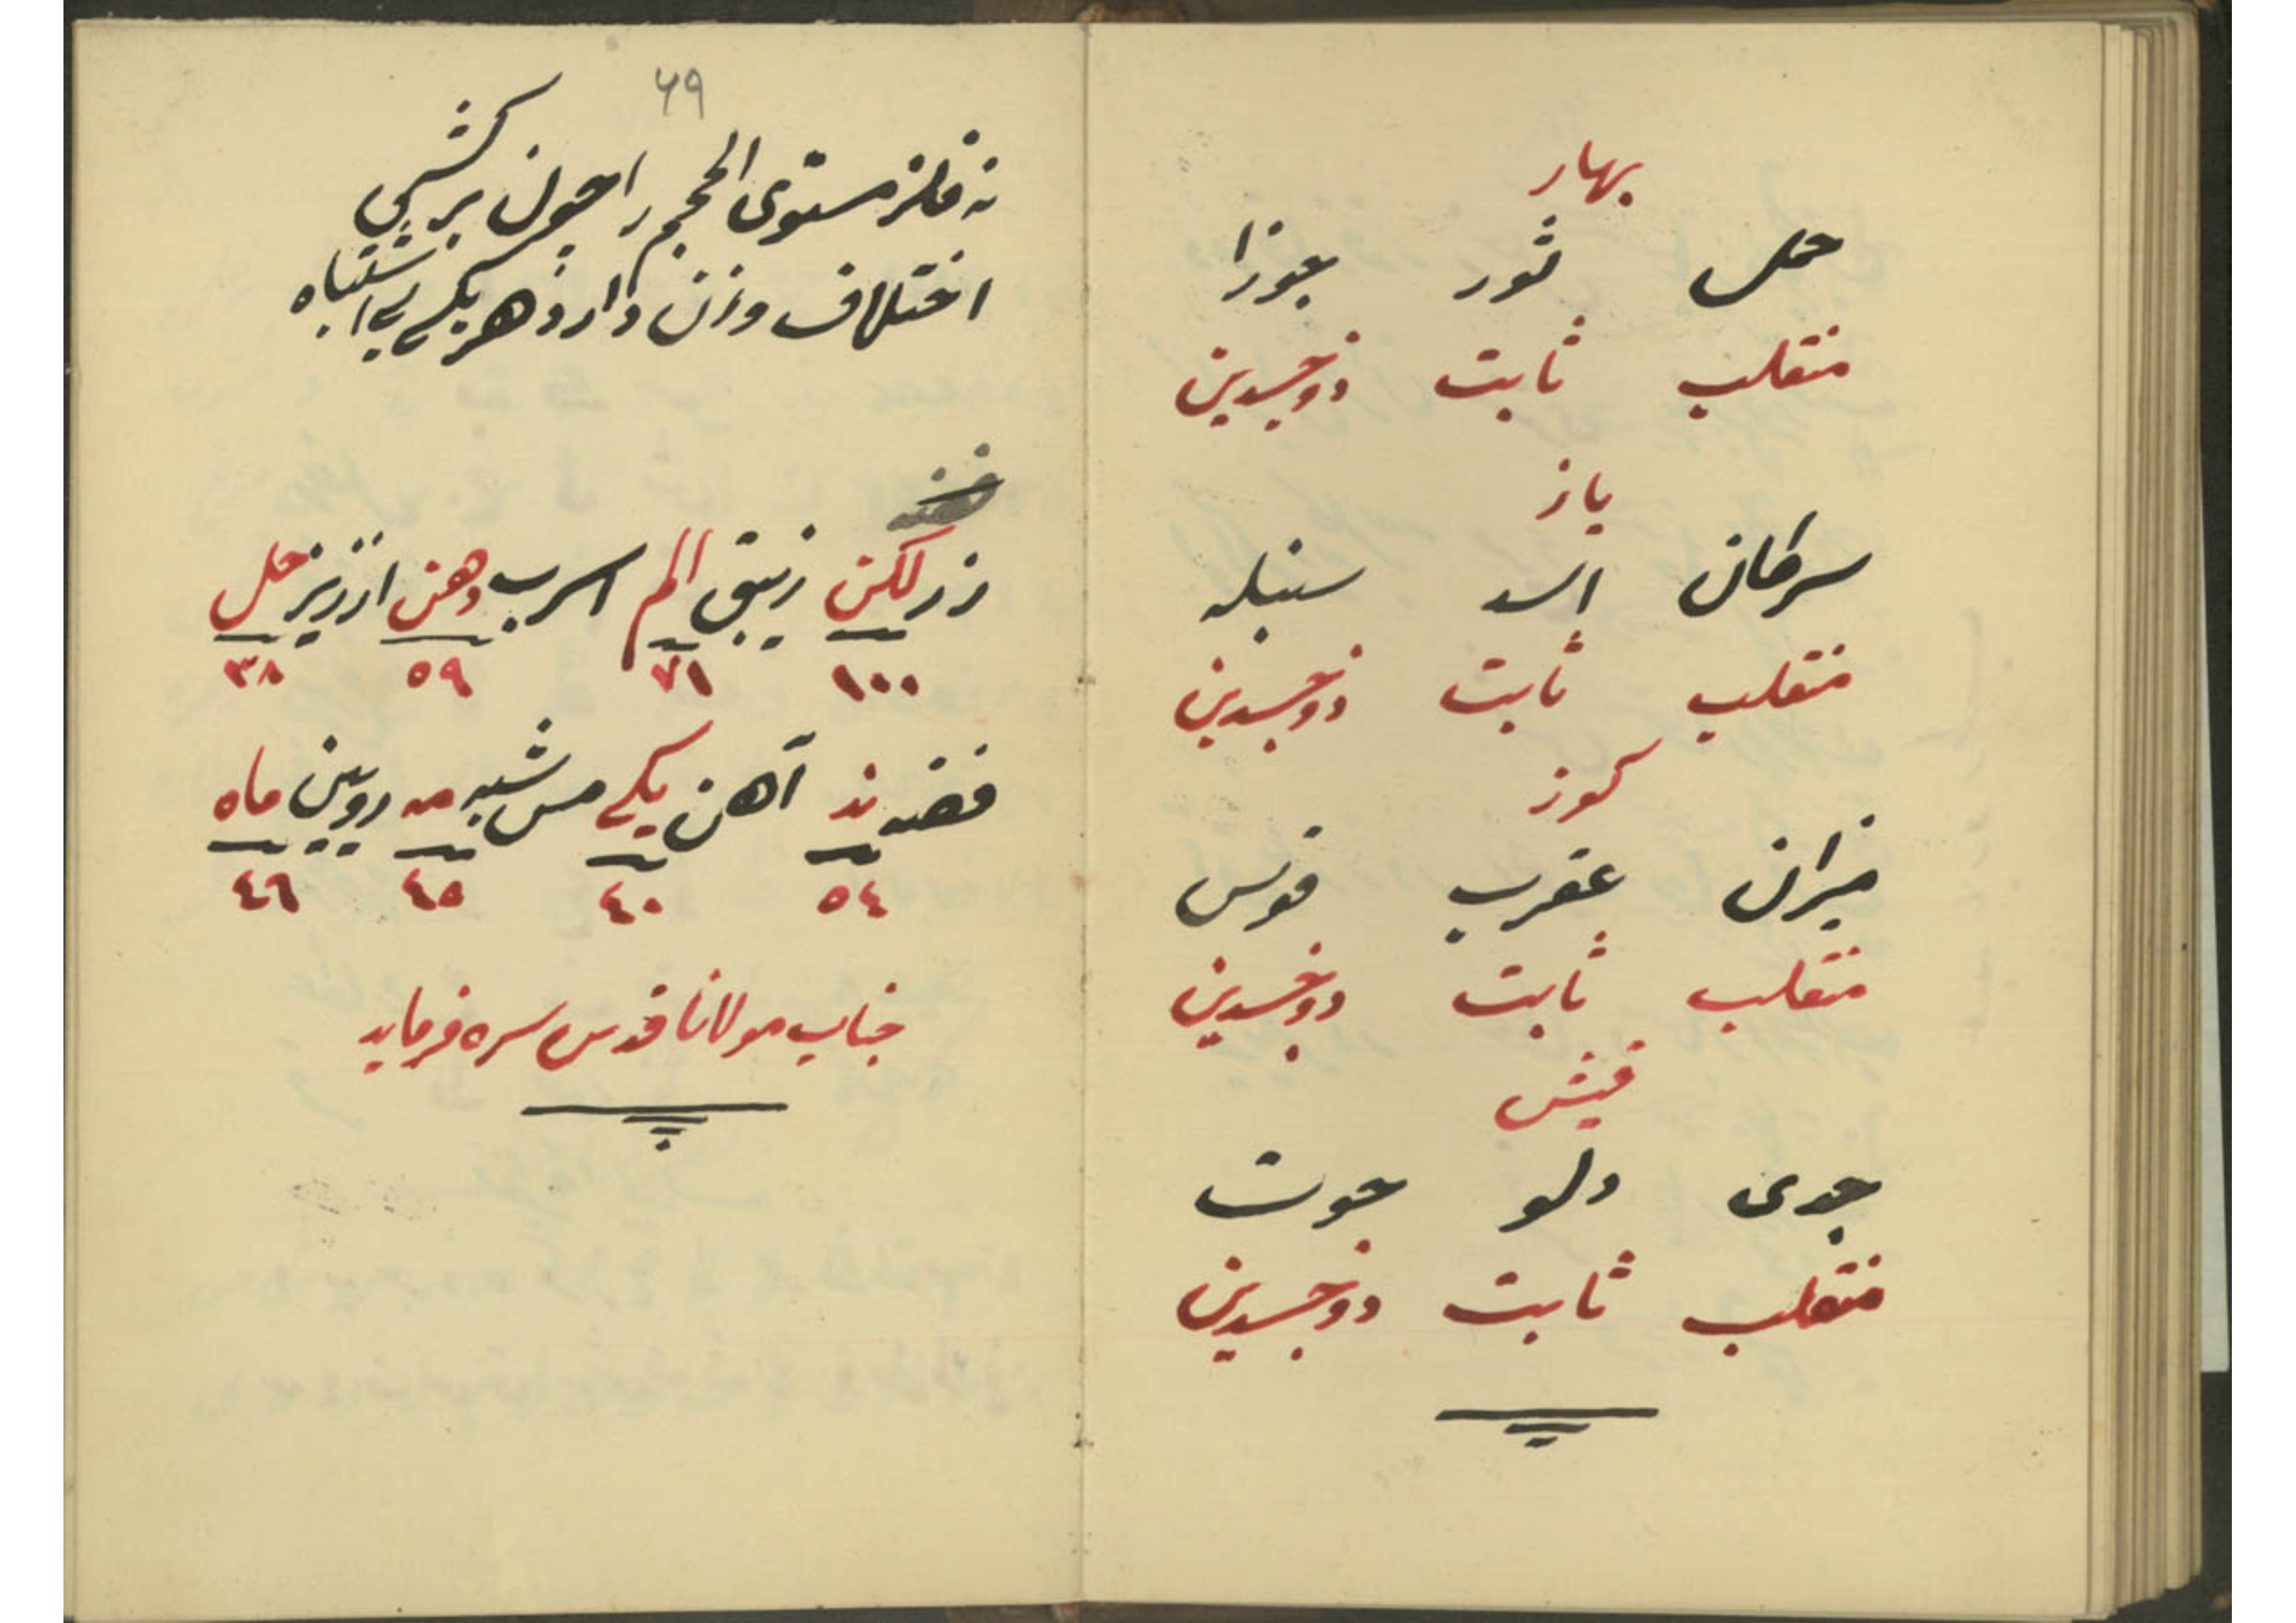 بهار
حمل ثور جوزا
منقلب ثابت ذوجسدین
یاز
سرطان اسد سنبله
منقلب ثابت ذوجسدین
کوز
میزان عقرب قوس
منقلب ثابت ذوجسدین
قیش
جدی دلو حوت
منقلب ثابت ذوجسدین
۶۹
نه فلز مستوی الحجم را چون برکشی
اختلاف وزن دارد هر یکی بی اشتباه
زر لکن زیبق الم اسرب دهن ارزیز حل
١٠٠ ٧١ ٥٩ ٣٨
فضه ند آهن یکی مس شبه مه رویین ماه
٥٤ ٤٠ ٤٥ ٤٦
جناب مولانا قدس سره فرماید